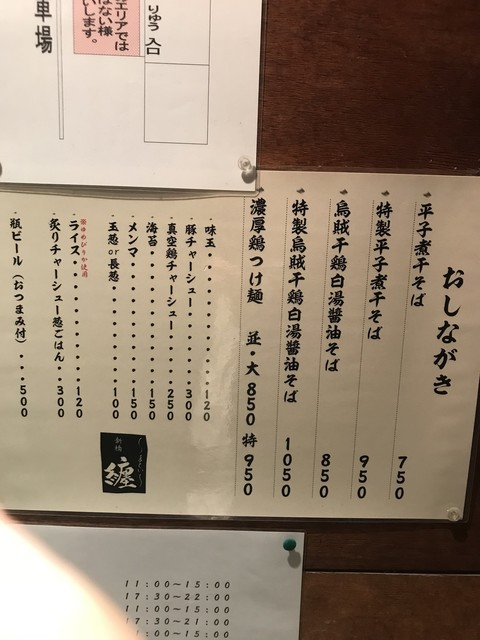 車場
りゅう 入口
エリアでは
はない様
いします。
おしながき
平子煮干そば 750
特製平子煮干そば 950
烏賊干鶏白湯醤油そば 850
特製烏賊干鶏白湯醤油そば 1050
濃厚鶏つけ麺 並・大850 特950
味玉・・・・・・・・・・・・120
豚チャーシュー・・・・・・300
真空鶏チャーシュー・・・・250
海苔・・・・・・・・・・・・150
メンマ・・・・・・・・・・・150
玉葱or長葱・・・・・・・・100
※ゆめぴりか使用
ライス・・・・・・・・・・・120
炙りチャーシュー葱ごはん・・300
瓶ビール(おつまみ付)・・・500
新橋
纏
11:00~15:00
17:30~22:00
11:00~15:00
17:30~21:00
11:00~15:00